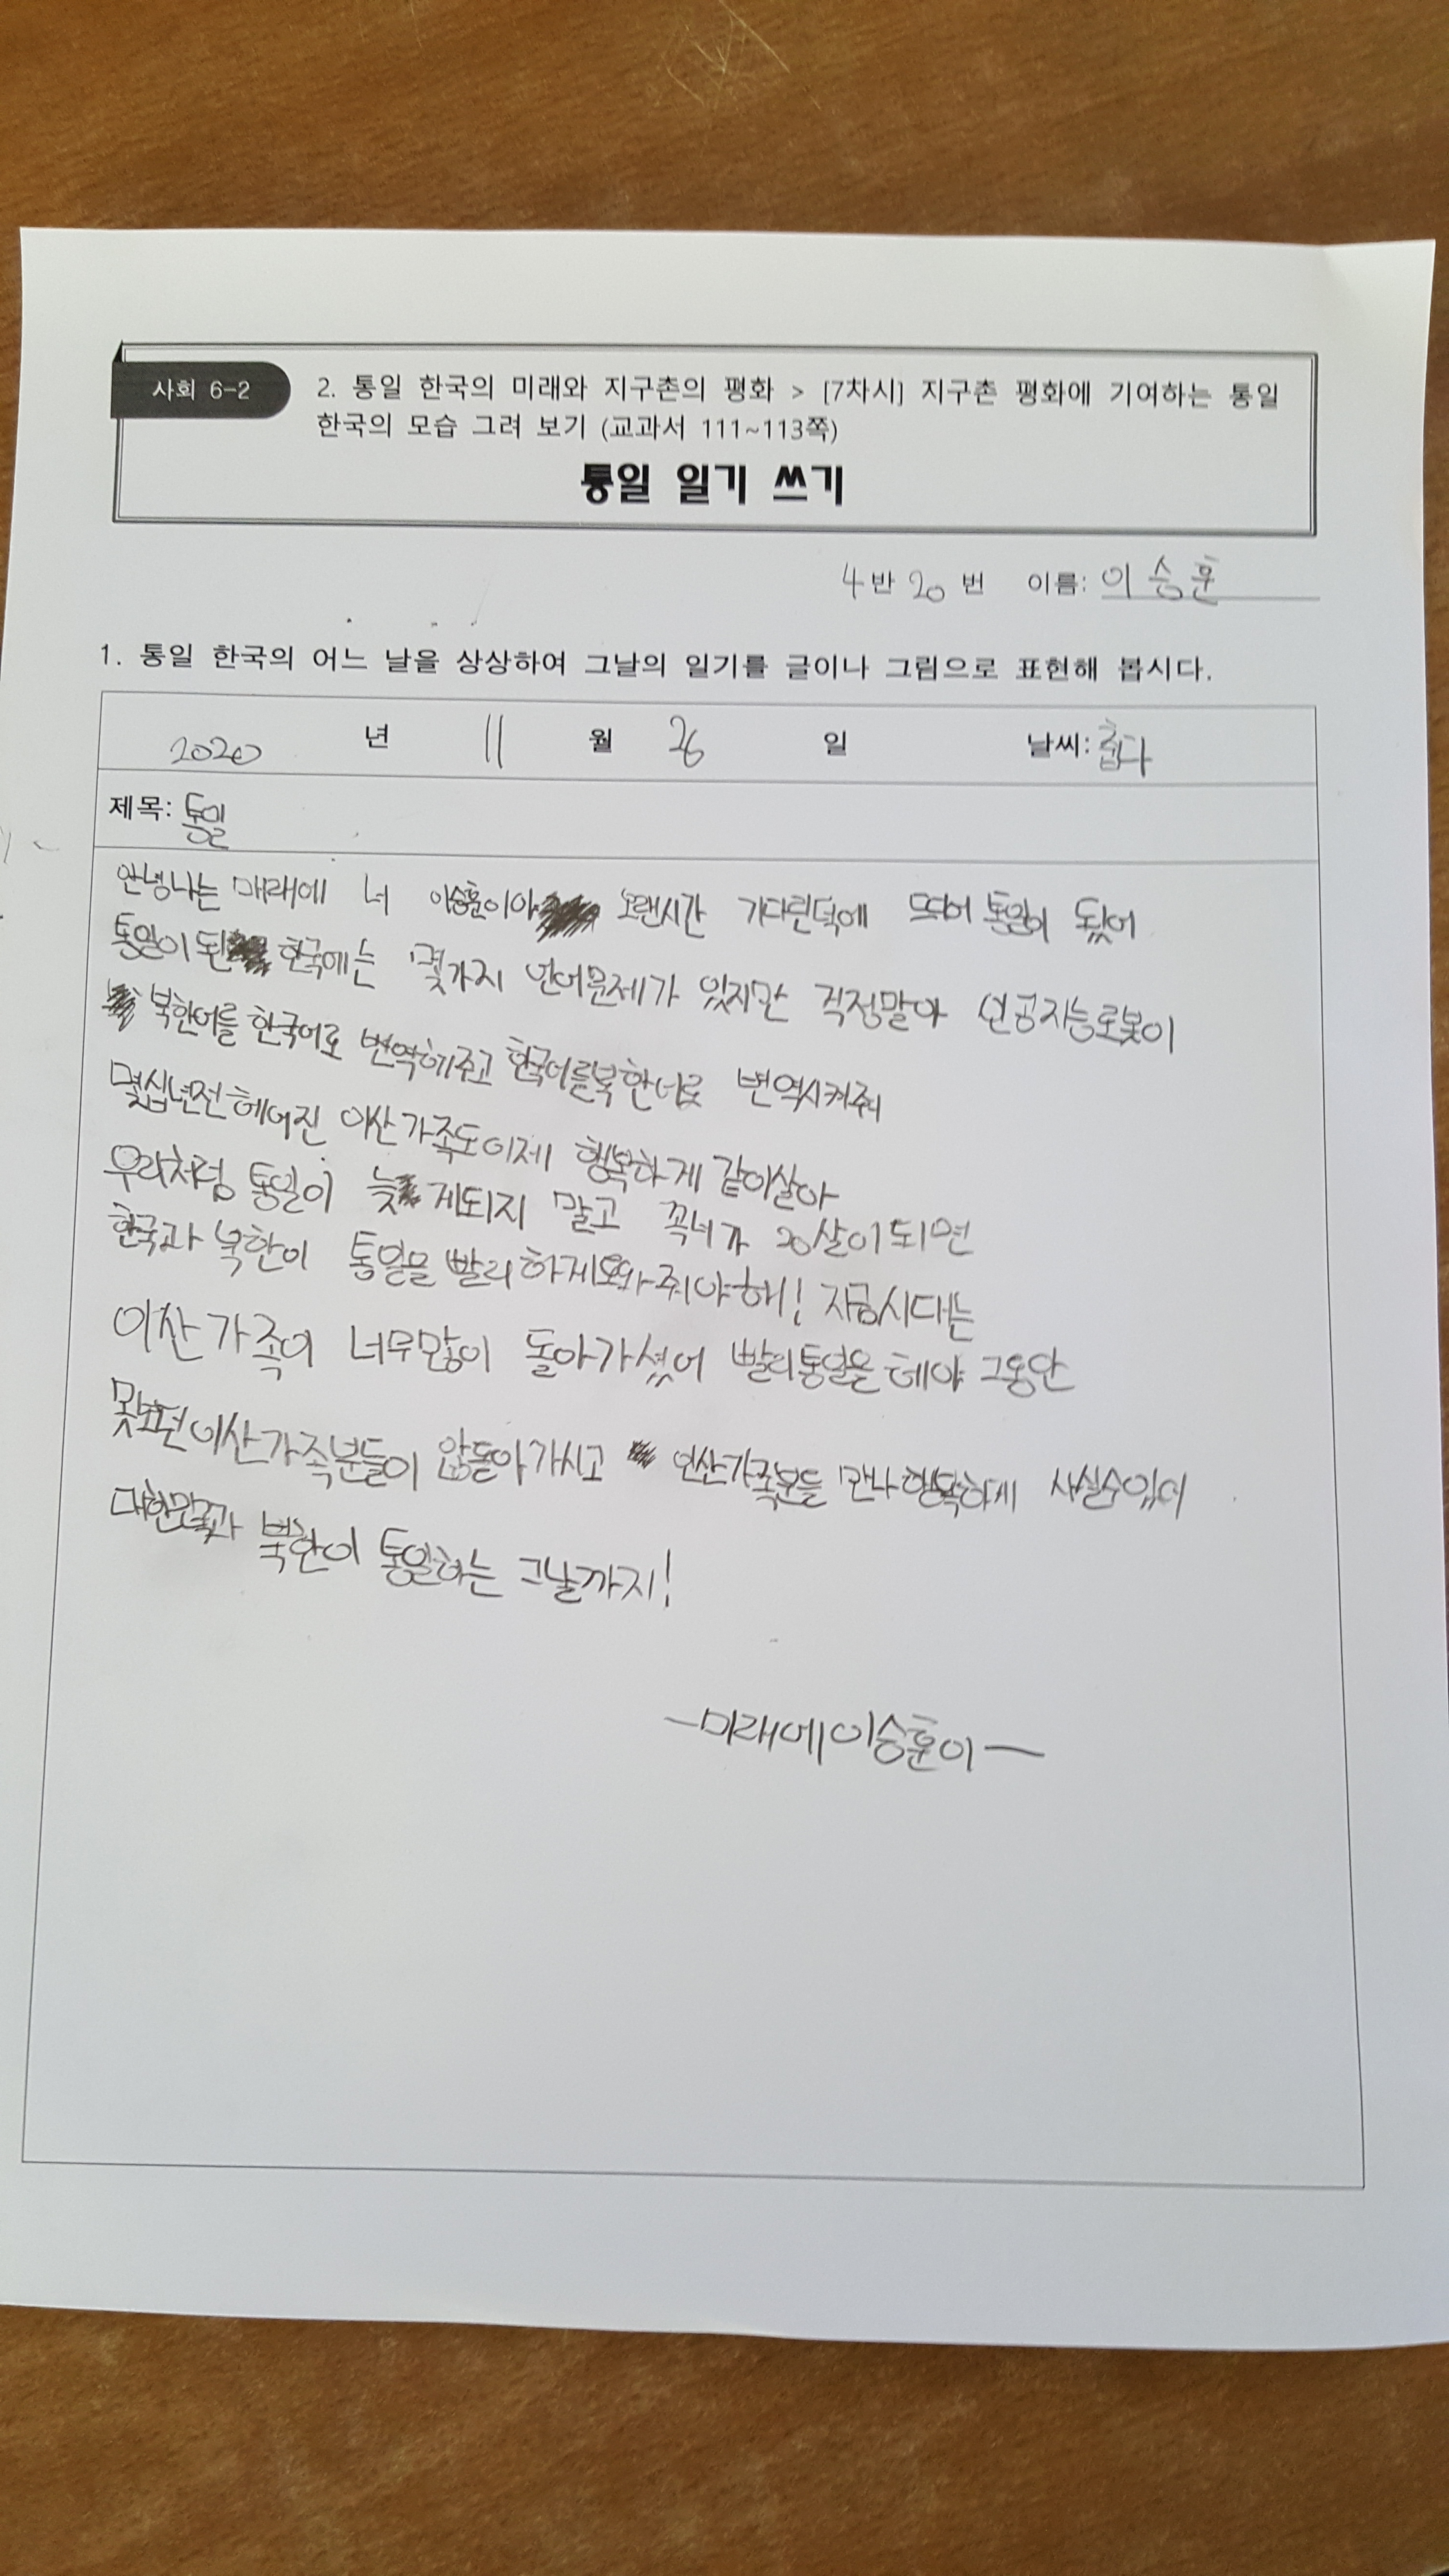 사회 6-2
2. 통일 한국의 미래와 지구촌의 평화 > [7차시] 지구촌 평화에 기여하는 통일
한국의 모습 그려 보기 (교과서 111~113쪽)
통일 일기 쓰기
4반 20 번 이름: 이승훈
1. 통일 한국의 어느 날을 상상하여 그날의 일기를 글이나 그림으로 표현해 봅시다.
2020 년 11 월 26 일 날씨: 춥다
제목: 통일
안녕 나는 미래에 너 이승훈이야 오랜시간 기다린덕에 뜨디어 통일이 됬어
통일이 된 한국에는 몇가지 언어문제가 있지만 걱정말아 인공지능로봇이
북한어를 한국어로 번역해주고 한국어를 북한어로 번역시켜줘
몇십년전 헤어진 이산가족도 이제 행복하게 같이살아
우리처럼 통일이 늦게되지 말고 꼭 너가 20살이 되면
한국과 북한이 통일을 빨리 하게 도와줘야해! 지금시대는
이산가족이 너무많이 돌아가셨어 빨리 통일을 해야 그동안
못보던 이산가족분들이 않돌아가시고 인산가족분들 만나 행복하게 사실수있어
대한민국과 북한이 통일하는 그날까지!
-미래에 이승훈이-